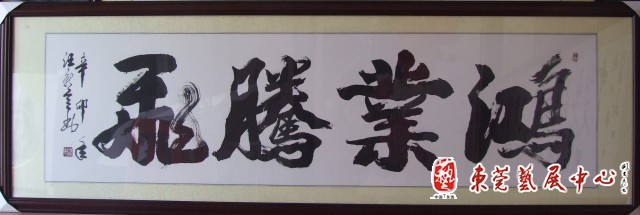 鴻業騰飛
辛卯年
東莞藝展中心